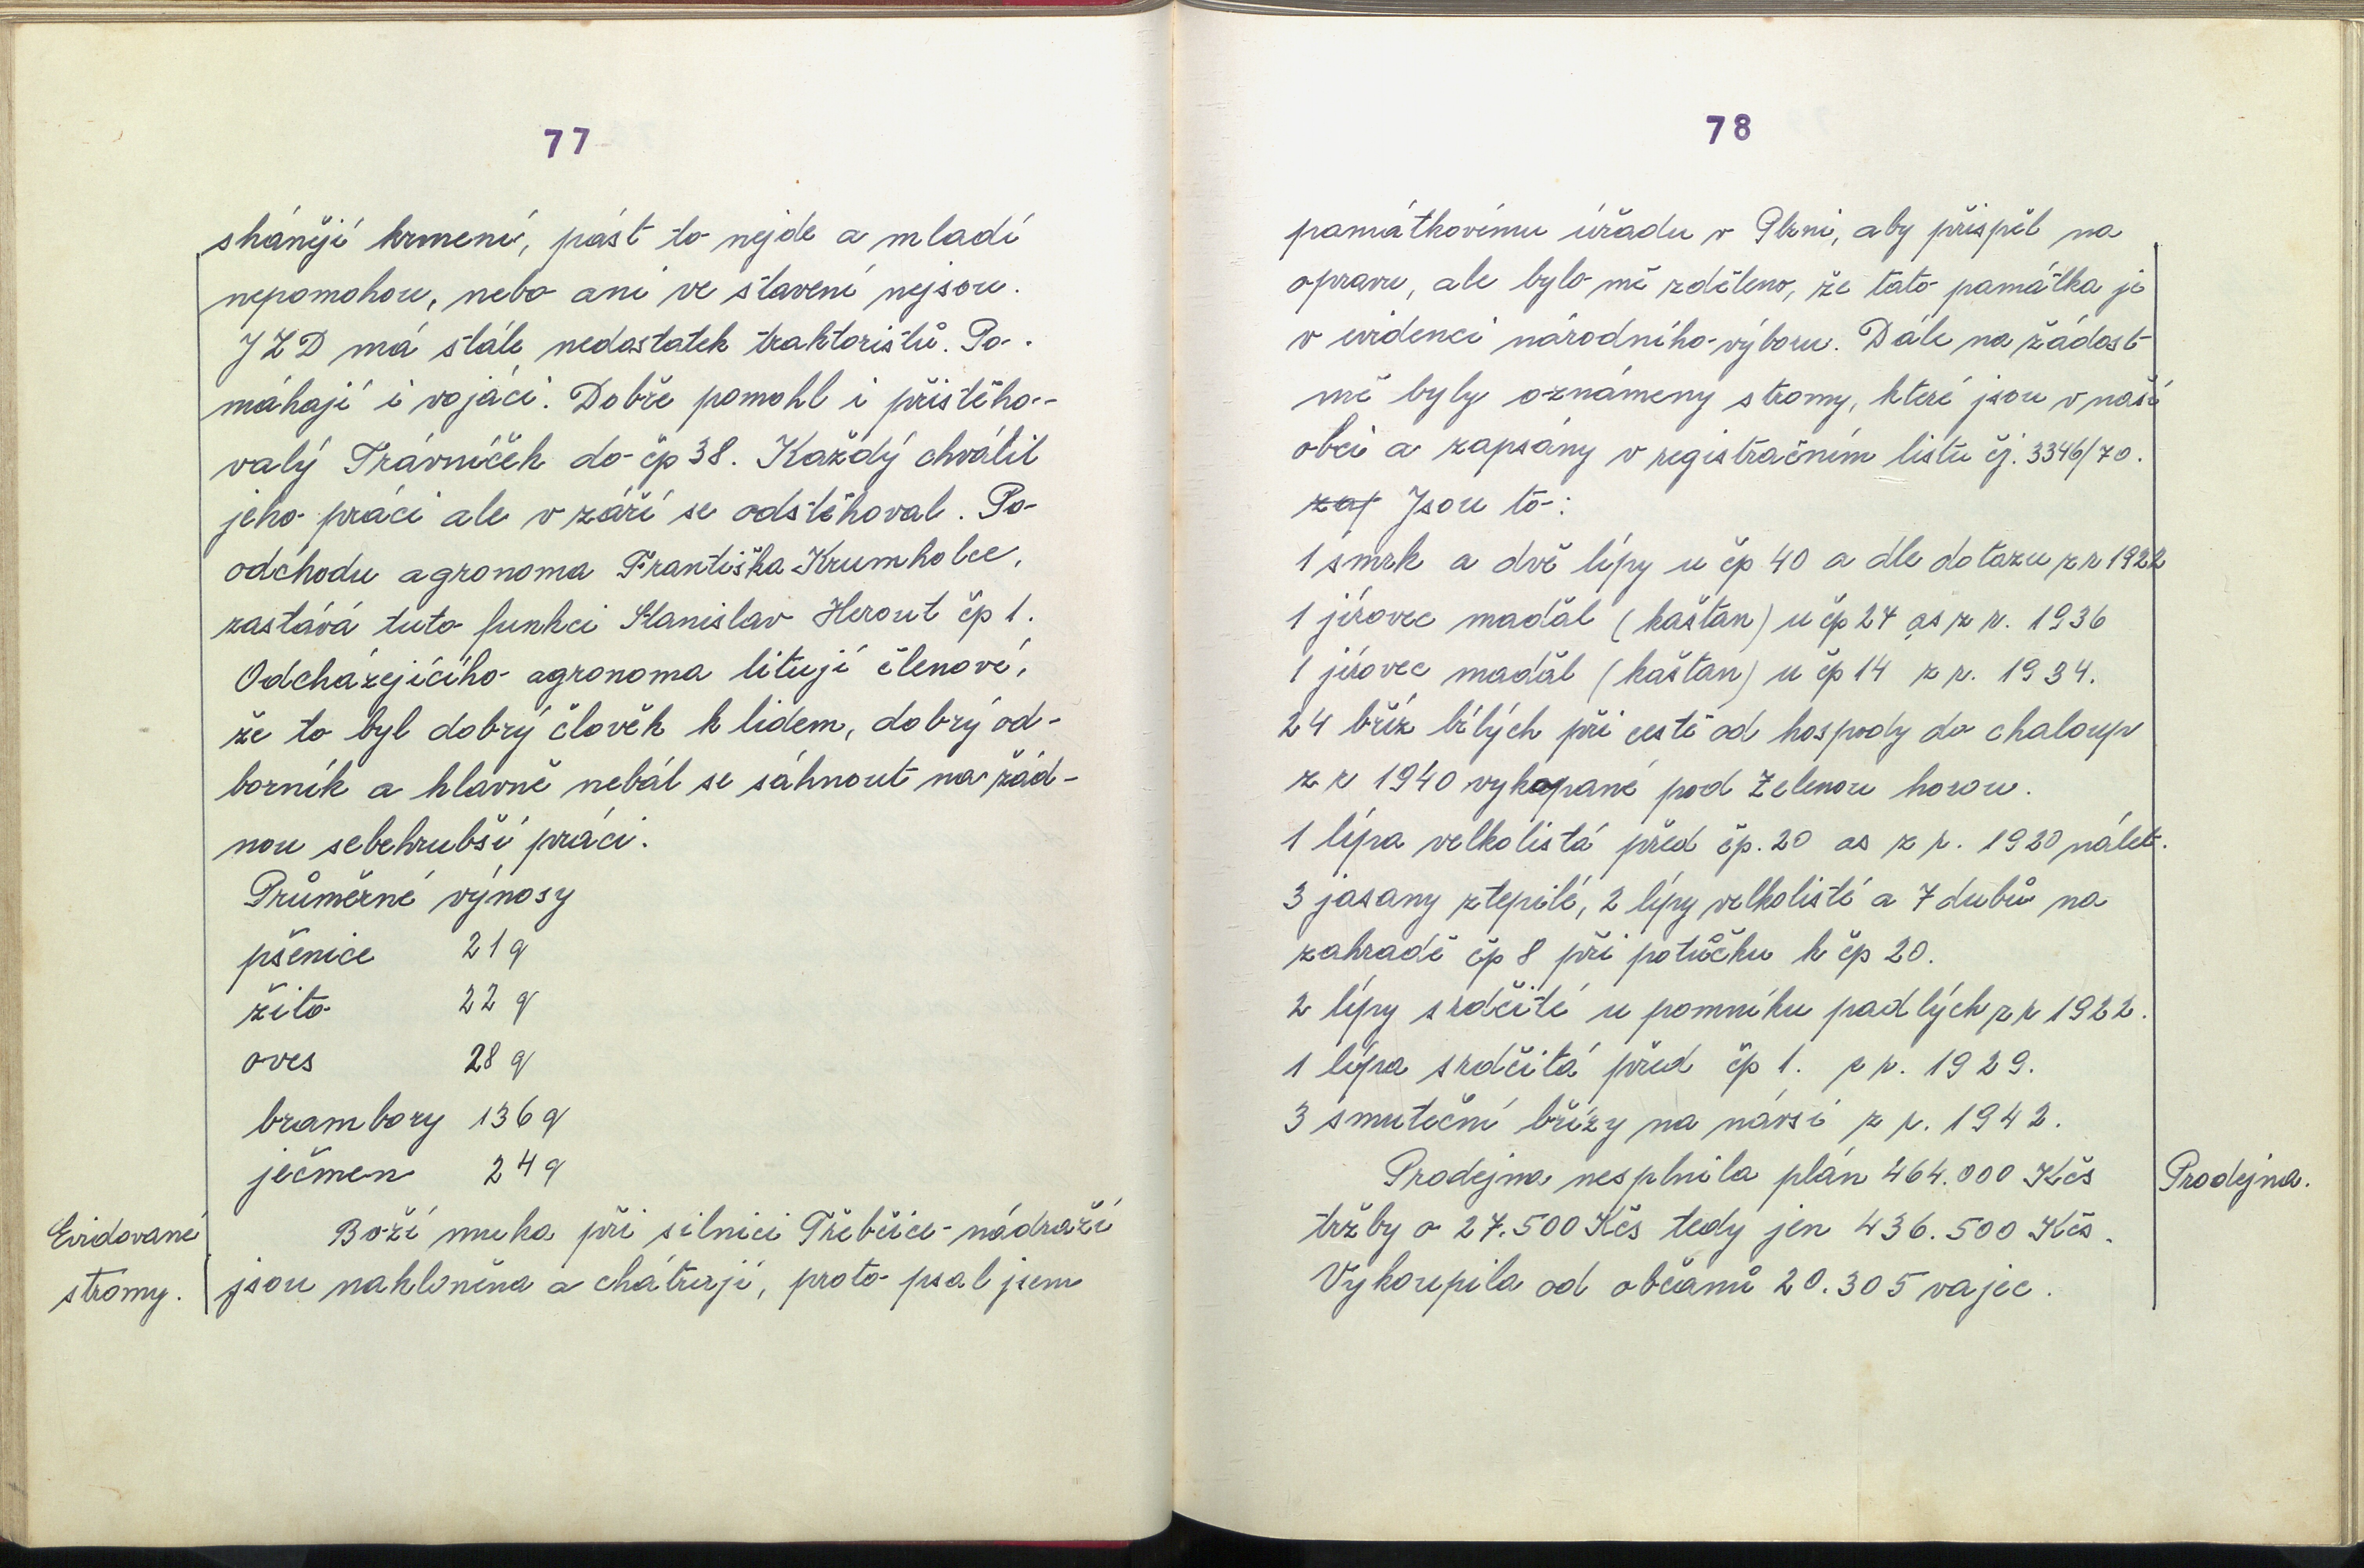 77
shánějí krmení, pást to nejde a mladí
nepomohou, nebo ani ve stavení nejsou.
JZD má stále nedostatek traktoristů. Po-
máhají i vojáci. Dobře pomohl i přistěho-
valý Trávníček do čp 38. Každý chválil
jeho práci ale v září se odstěhoval. Po
odchodu agronoma Františka Krumholce,
zastává tuto funkci Stanislav Herout čp 1.
Odcházejícího agronoma litují členové,
že to byl dobrý člověk k lidem, dobrý od-
borník a hlavně nebál se sáhnout na žád-
nou sebehrubší práci.
Průměrné výnosy
pšenice 21 q
žito 22 q
oves 28 q
brambory 136 q
ječmen 24 q
Evidované
stromy.
Boží muka při silnici Třebčice-nádraží
jsou nakloněna a chátrají, proto psal jsem
78
památkovému úřadu v Plzni, aby přispěl na
opravu, ale bylo mě zděleno, že tato památka je
v evidenci národního výboru. Dále na žádost
mě byly oznámeny stromy, které jsou v naší
obci a zapsány v registračním listu čj. 3346/70.
zap Jsou to:
1 smrk a dvě lípy u čp 40 a dle dotazu z r 1922
1 jírovec maďál (kaštan) u čp 24 as z r. 1936
1 jírovec maďál (kaštan) u čp 14 z r. 1934.
24 bříz bílých při cestě od hospody do chaloup
z r 1940 vykopané pod Zelenou horou.
1 lípa velkolistá před čp. 20 as z r. 1920 nálet.
3 jasany ztepilé, 2 lípy velkolisté a 7 dubů na
zahradě čp 8 při potůčku k čp 20.
2 lípy srdčité u pomníku padlých z r 1922.
1 lípa srdčitá před čp 1. z r. 1929.
3 smuteční břízy na návsi z r. 1942.
Prodejna nesplnila plán 464.000 Kčs
tržby o 27.500 Kčs tedy jen 436.500 Kčs.
Vykoupila od občanů 20.305 vajec.
Prodejna.